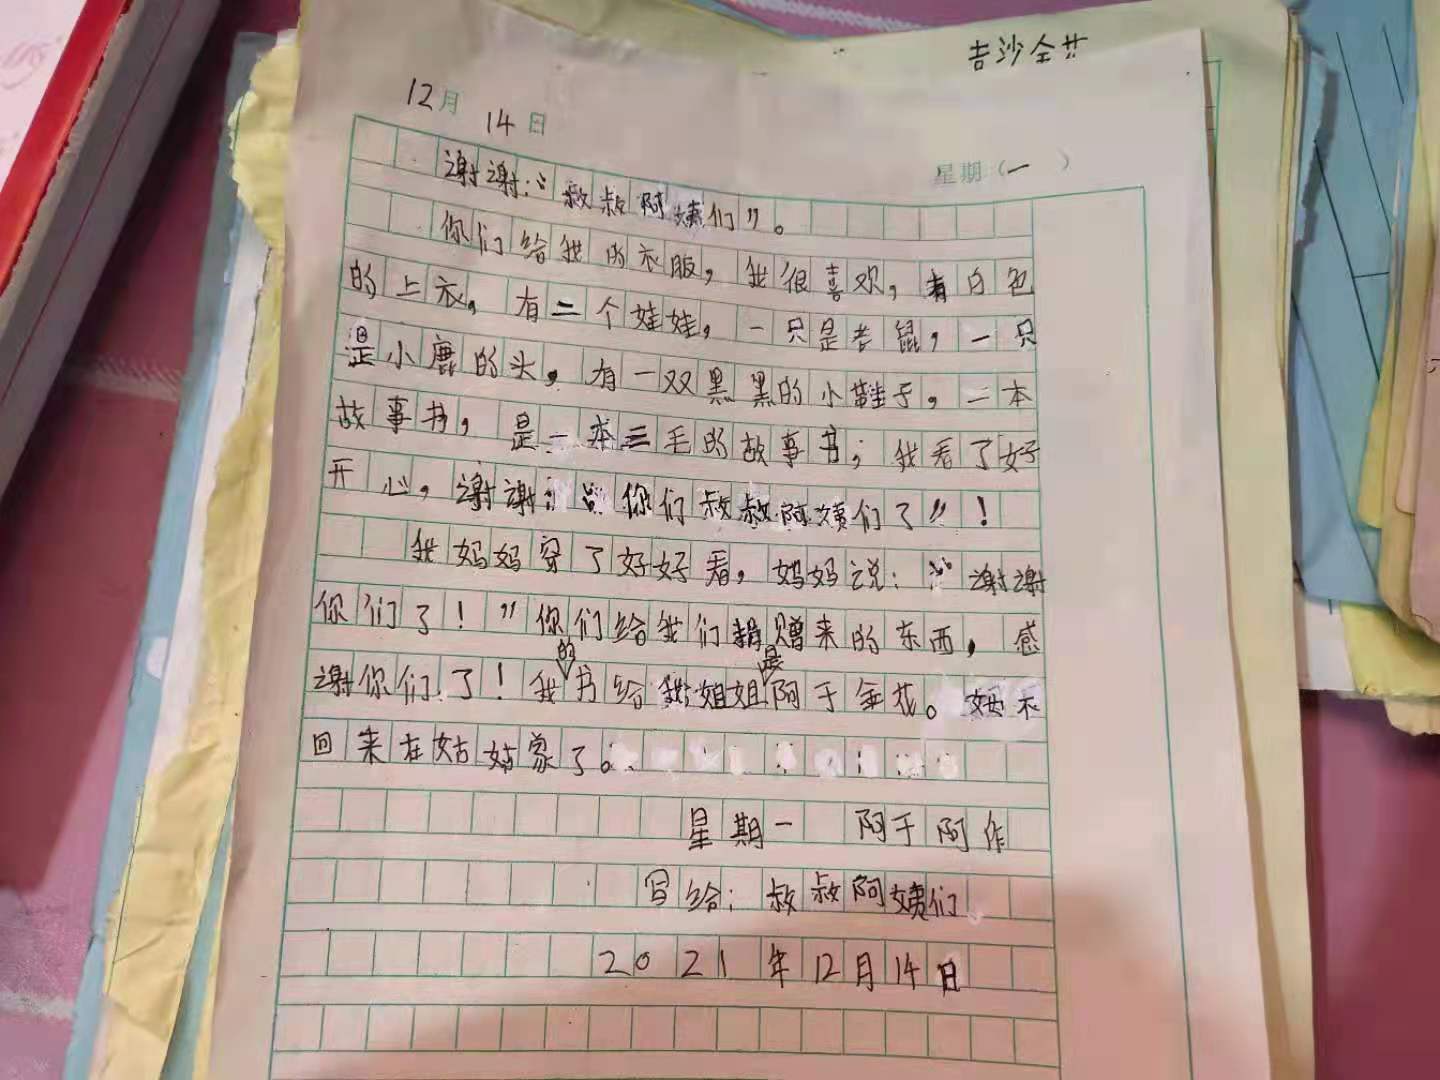 吉沙全廿
12月
14日
星期(一)
谢谢:“叔叔阿姨们”。
你们给我的衣服,我很喜欢,有白色
的上衣,有二个娃娃,一只是老鼠,一只
是小鹿的头,有一双黑黑的小鞋子,二本
故事书,是一本三毛的故事书;我看了好
开心,谢谢:“你们叔叔阿姨们了”!
我妈妈穿了好好看,妈妈说:“谢谢
你们了!”你们给我们捐赠来的东西,感
谢你们了!我的书给我姐姐是阿于金花。她不
回来在姑姑家了。
星期一 阿于阿作
写给:叔叔阿姨们
2021年12月14日